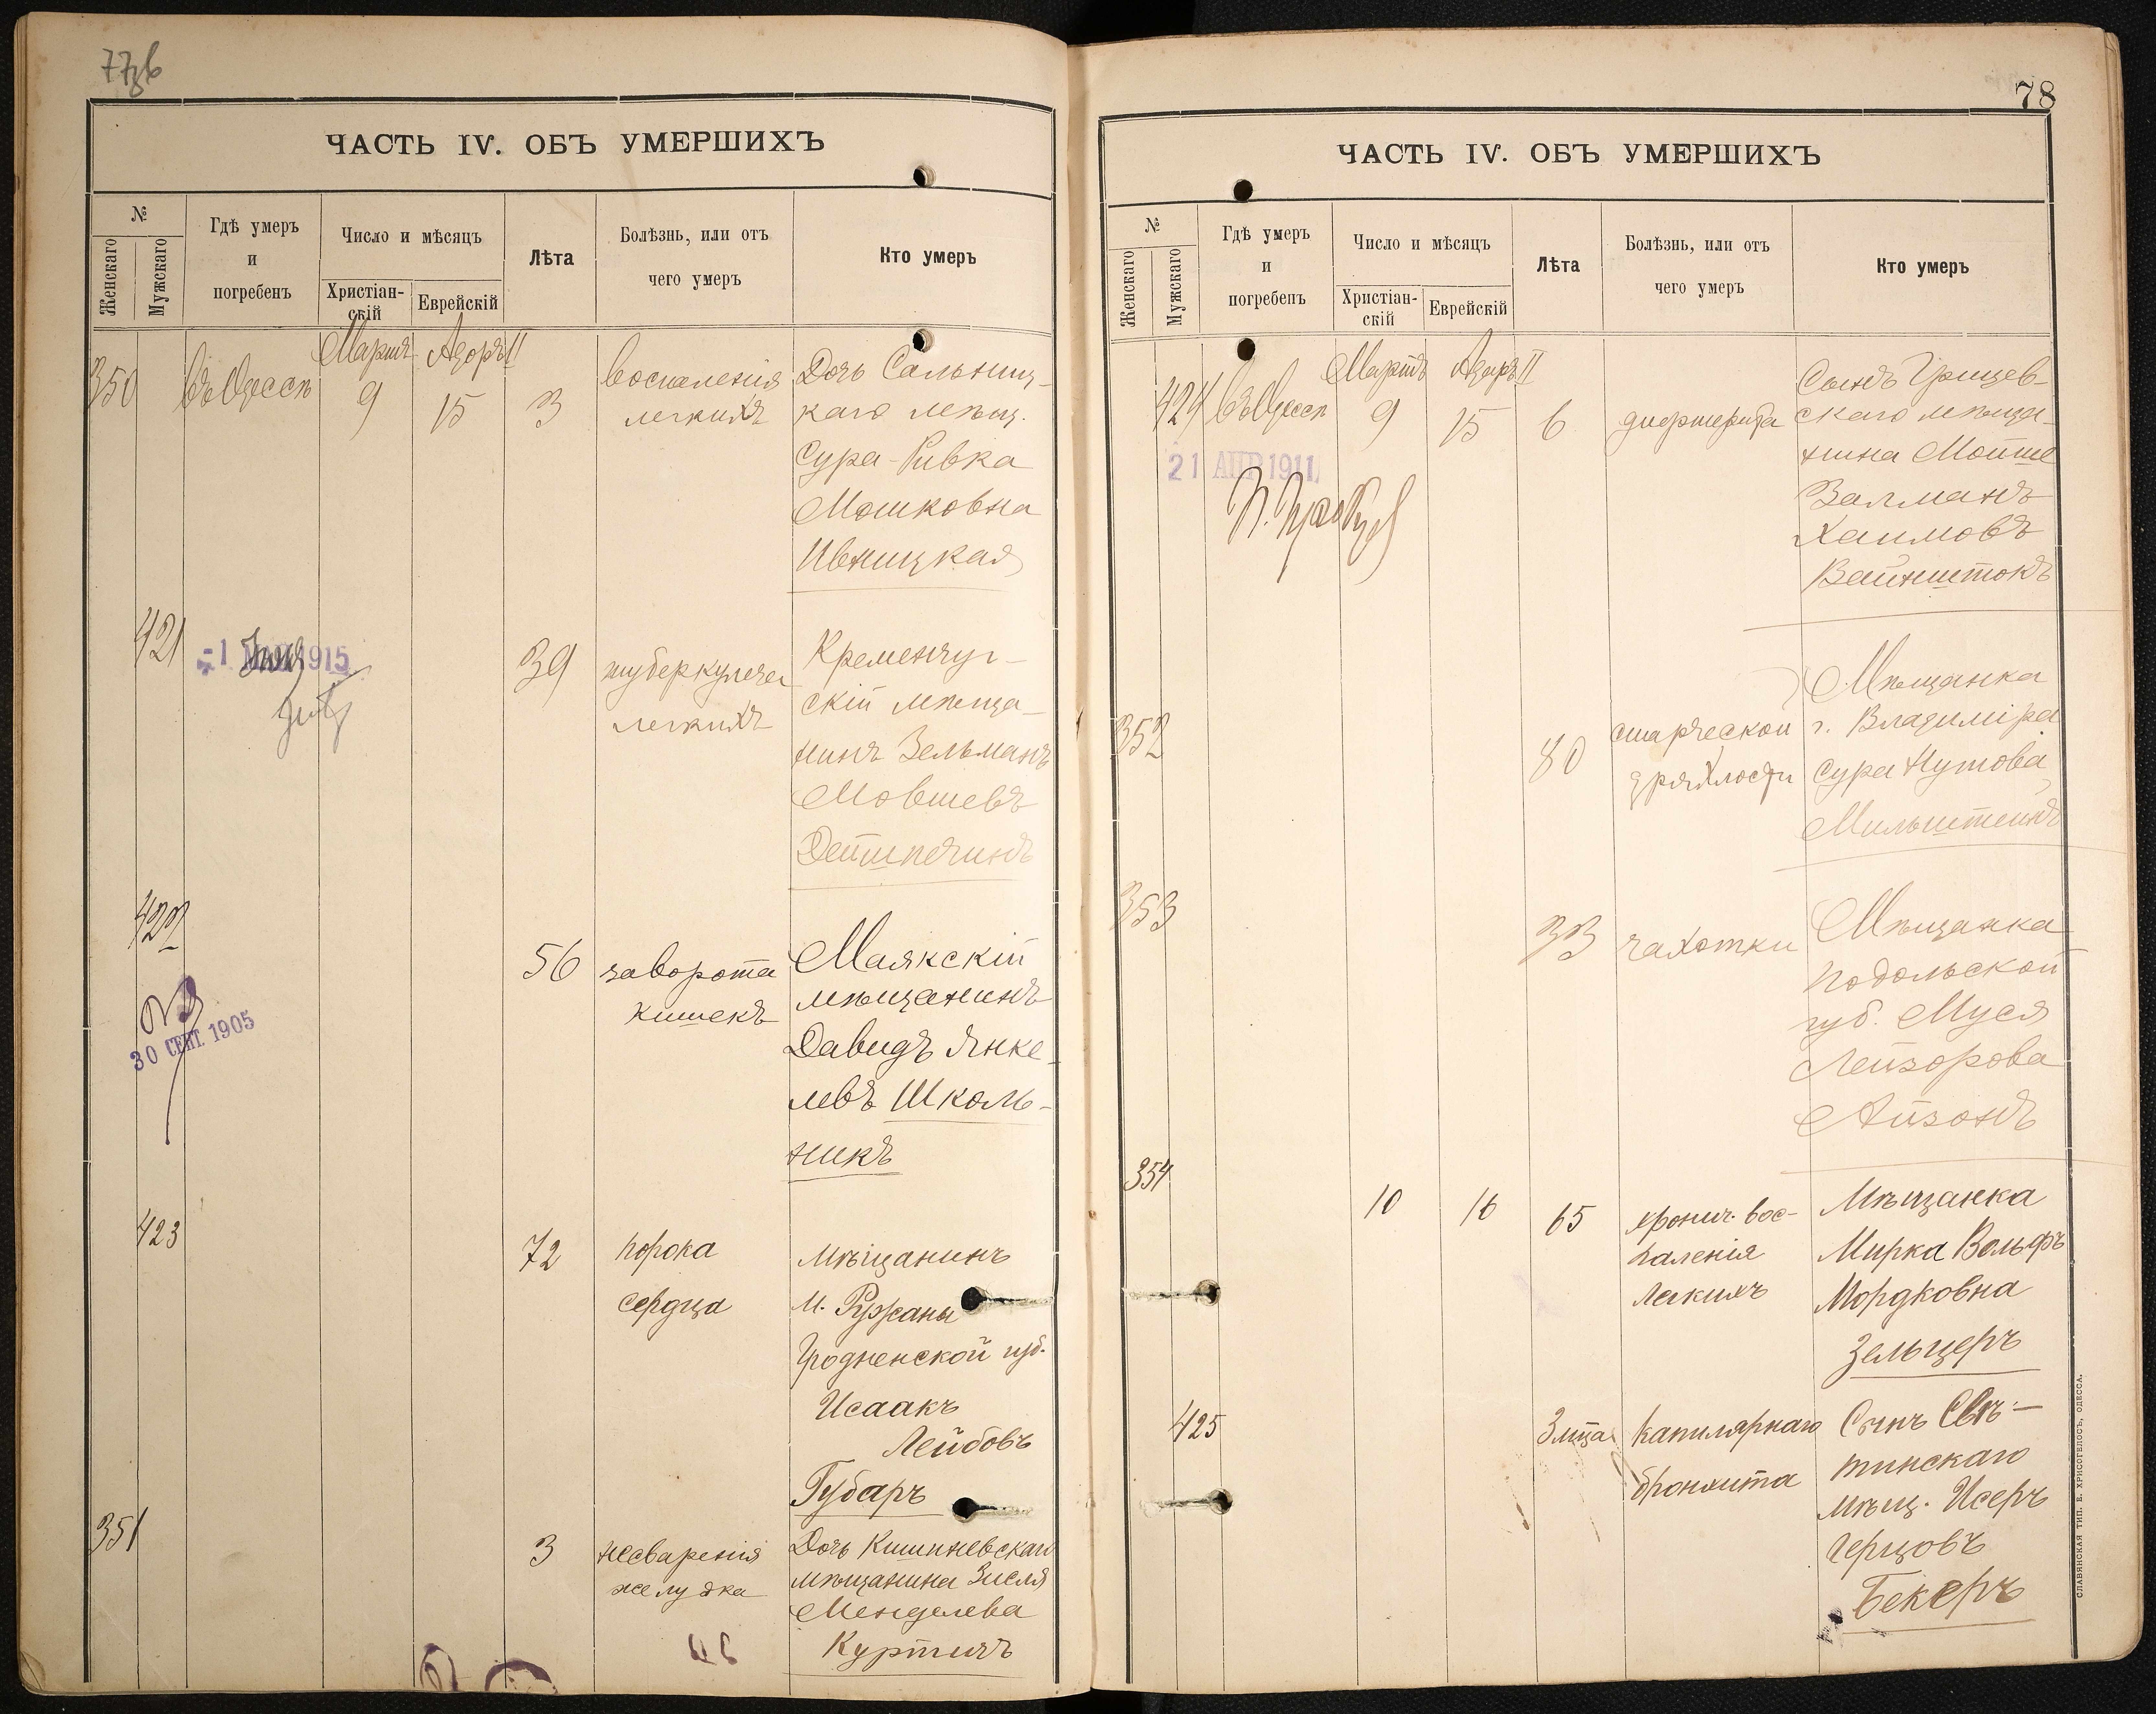 77зв
ЧАСТЬ IV. ОБЪ УМЕРШИХЪ
№
Женскаго
Мужскаго
Гдѣ умеръ
и
погребенъ
Число и мѣсяцъ
Христіан-
скій
Еврейскій
Лѣта
Болѣзнь, или отъ
чего умеръ
Кто умеръ
Мартъ
Адоръ II
350
въ Одессѣ
9
15
3
воспаленія
легкихъ
Дочь Сальниц-
каго мѣщ.
Сура-Ривка
Мошковна
Ивницкая
421
1915
39
туберкулеза
легкихъ
Кременчуг-
скій мѣща-
нинъ Зельманъ
Мовшевъ
Дейтпечинъ
422
30 СЕНТ. 1905
56
заворота
кишекъ
Маякскій
мѣщанинъ
Давидъ Янке-
левъ Школь-
никъ
423
72
порока
сердца
Мѣщанинъ
М. Ружаны
Гродненской губ.
Исаакъ
Лейбовъ
Губаръ
351
3
несваренія
желудка
Дочь Кишиневскаго
мѣщанина Зисля
Менделева
Куртихъ
78
ЧАСТЬ IV. ОБЪ УМЕРШИХЪ
№
Женскаго
Мужскаго
Гдѣ умеръ
и
погребенъ
Число и мѣсяцъ
Христіан-
скій
Еврейскій
Лѣта
Болѣзнь, или отъ
чего умеръ
Кто умеръ
Мартъ
Адоръ II
424
въ Одессѣ
9
15
6
дифтерита
Сынъ Грицев-
скаго мѣща-
нина Мойше
Залманъ
Хаимовъ
Вайнштокъ
21 АПР 1911
352
80
старческой
дряхлости
Мѣщанка
г. Владиміра
Сура Нутова
Мильштейнъ
353
33
чахотки
Мѣщанка
Подольской
губ. Муся
Лейзорова
Айзонъ
354
10
16
65
хронич. вос-
паленія
легкихъ
Мѣщанка
Мирка Вольфъ
Мордковна
Зельцеръ
425
3 мѣца
капилярнаго
бронхита
Сынъ Свѣ-
тинскаго
мѣщ. Исеръ
Герцовъ
Бекеръ
СЛАВЯНСКАЯ ТИП. Е. ХРИСОГЕЛОСЪ, ОДЕССА.